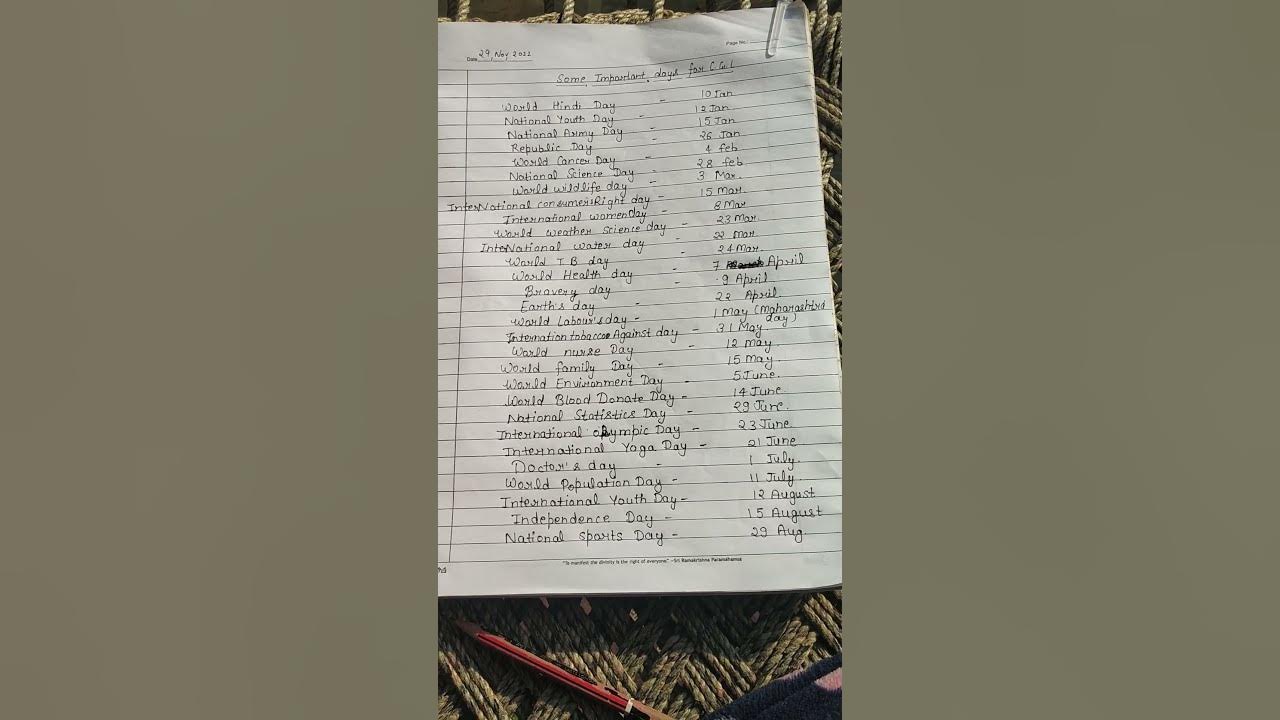 Page No.:
Date 29, Nov 2022
Some Important days for C.G.L
World Hindi Day - 10 Jan
National Youth Day - 12 Jan
National Army Day - 15 Jan
Republic Day - 26 Jan
World Cancer Day - 4 feb
National Science Day - 28 feb
World wildlife day - 3 Mar.
InterNational consumersRight day - 15 Mar.
International womenday - 8 Mar
World weather Science day - 23 Mar
InterNational water day - 22 Mar.
World T.B day - 24 Mar.
World Health day - 7 April
Bravery day - 9 April
Earth's day - 22 April.
World Labour's day - 1 May (Maharashtra day)
Internation tobacco Against day - 31 May
World nurse Day - 12 may
World family Day - 15 may
World Environment Day - 5 June.
World Blood Donate Day - 14 June.
National Statistics Day - 29 June.
International olympic Day - 23 June
International Yoga Day - 21 June
Doctor's day - 1 July.
World Population Day - 11 July.
International Youth Day - 12 August
Independence Day - 15 August
National sports Day - 29 Aug.
"To manifest the divinity is the right of everyone." –Sri Ramakrishna Paramahamsa